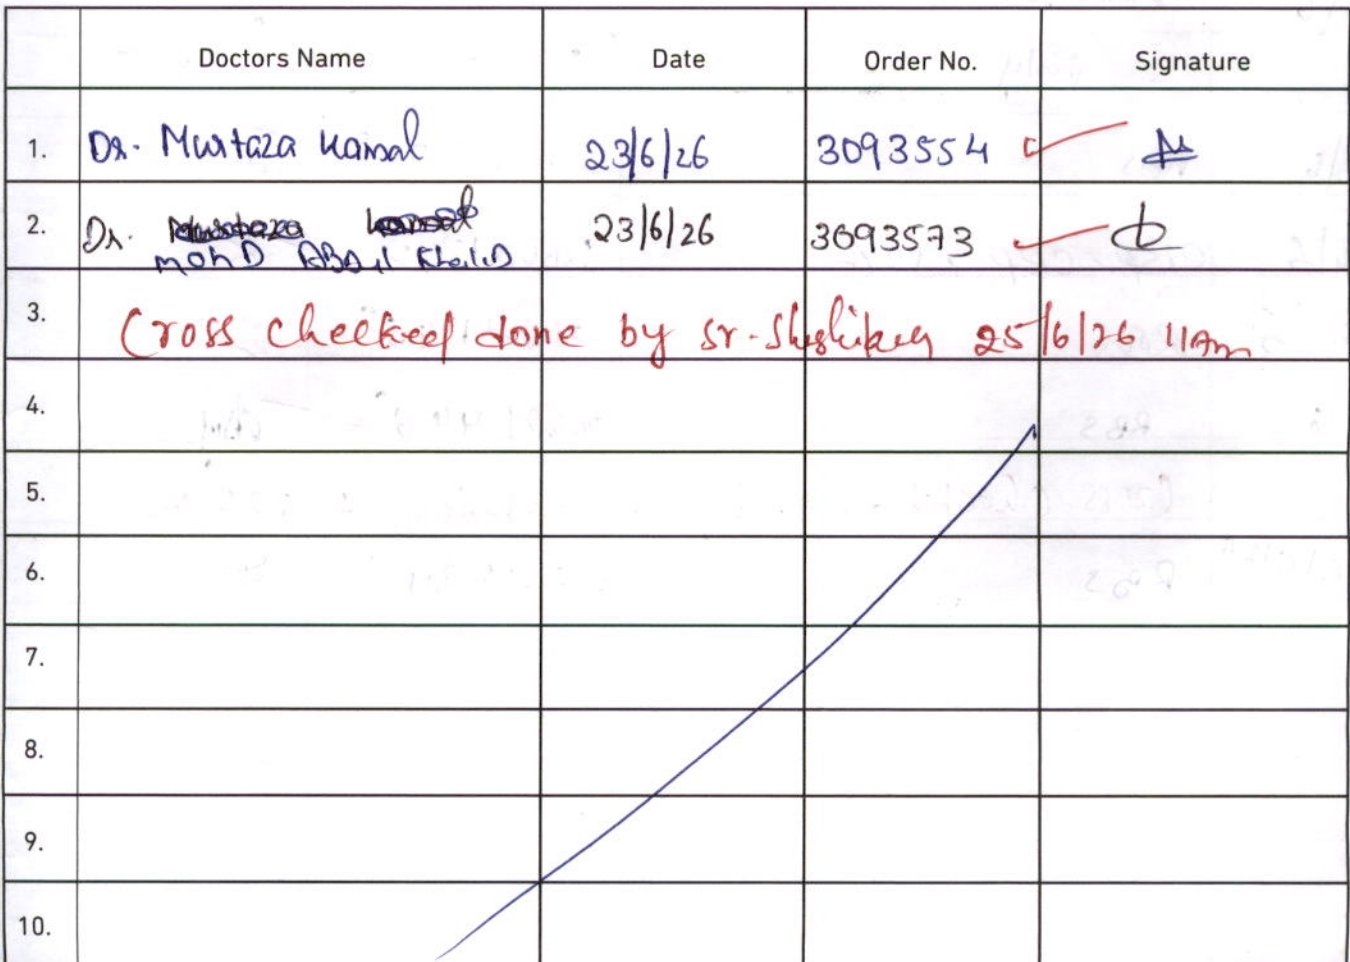 Doctors Name Date Order No. Signature
1. Dr. Murtaza Kamal 23/6/26 3093554
2. Dr. 23/6/26 3093573
mohD
3. Cross checked done by sr. 25/6/26 11Am
4.
5.
6.
7.
8.
9.
10.